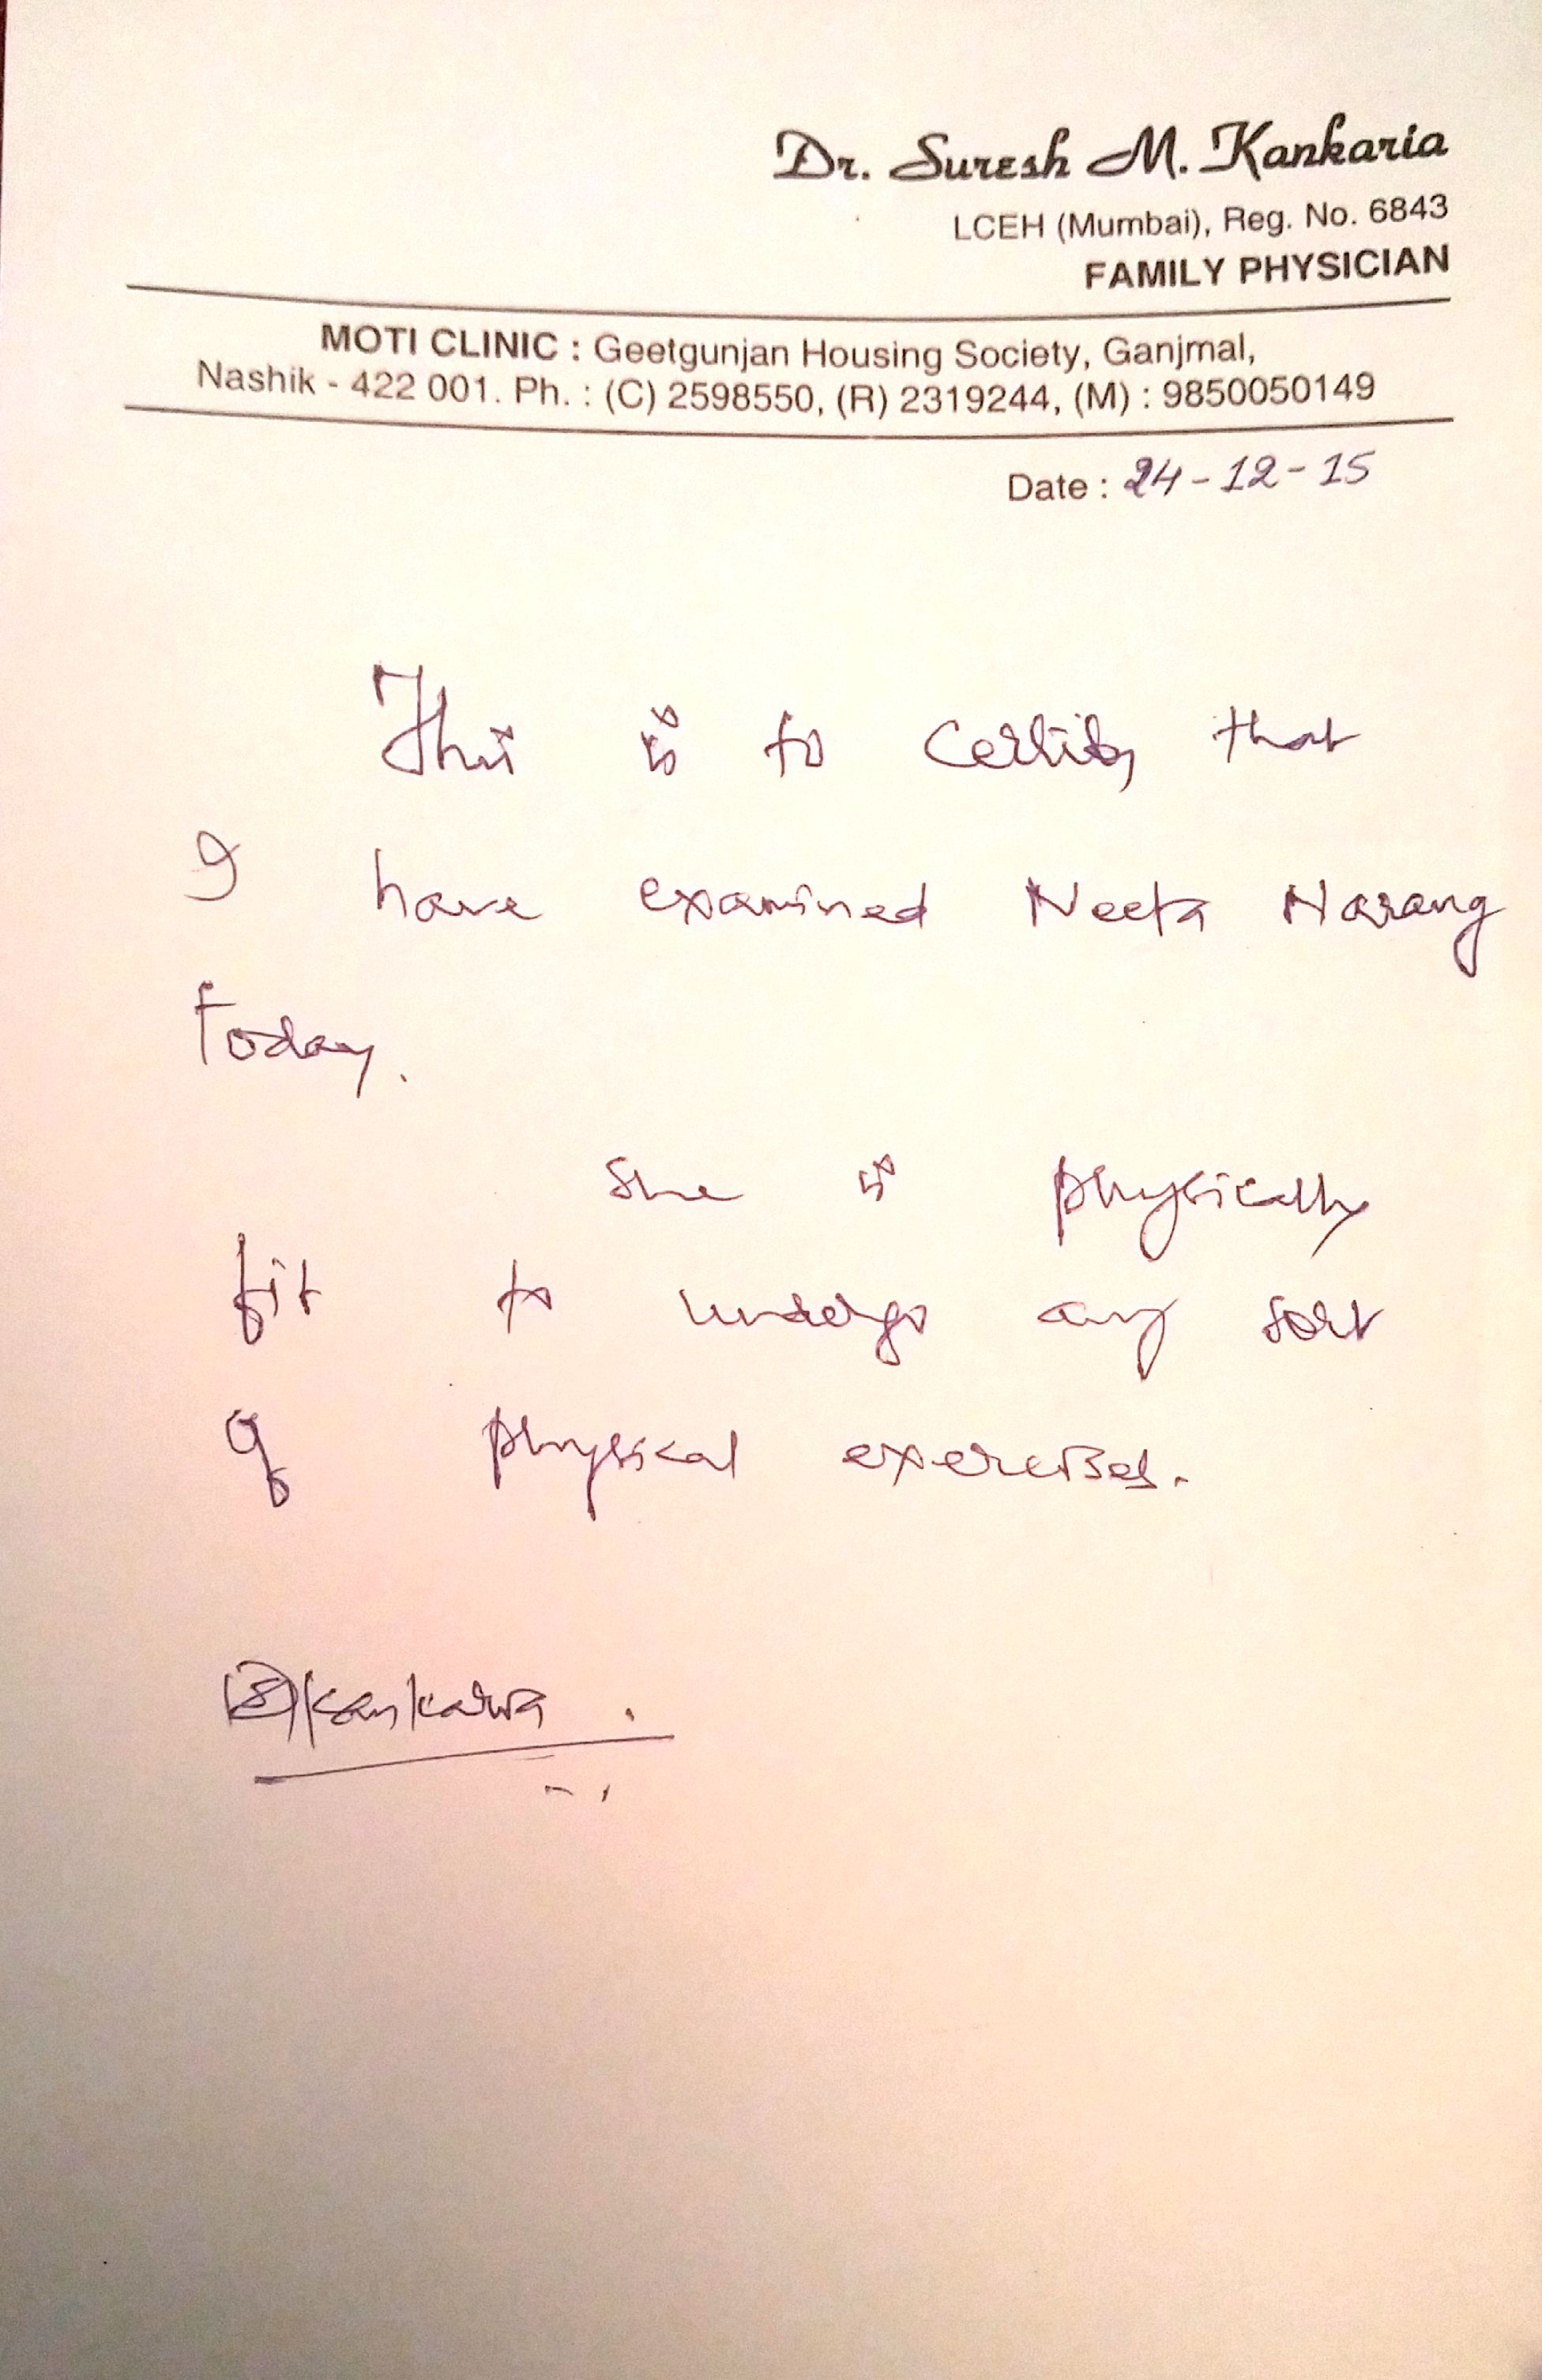 Dr. Suresh M. Kankaria
LCEH (Mumbai), Reg. No. 6843
FAMILY PHYSICIAN
MOTI CLINIC : Geetgunjan Housing Society, Ganjmal,
Nashik - 422 001. Ph. : (C) 2598550, (R) 2319244, (M) : 9850050149
Date : 24-12-15
This is to certify that
I have examined Neeta Narang
today.
She is physically
fit to undergo any sort
of physical exercises.
Kankaria